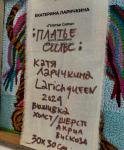 ЕКАТЕРИНА ЛАРИЧКИНА
«Платье Силы»
"ПЛАТЬЕ
СИЛЫ"
КАТЯ
ЛАРИЧКИНА
Larichqueen
2024
ВЫШИВКА
ХОЛСТ/ШЕРСТЬ
АКРИЛ
ВИСКОЗА
30x30 см